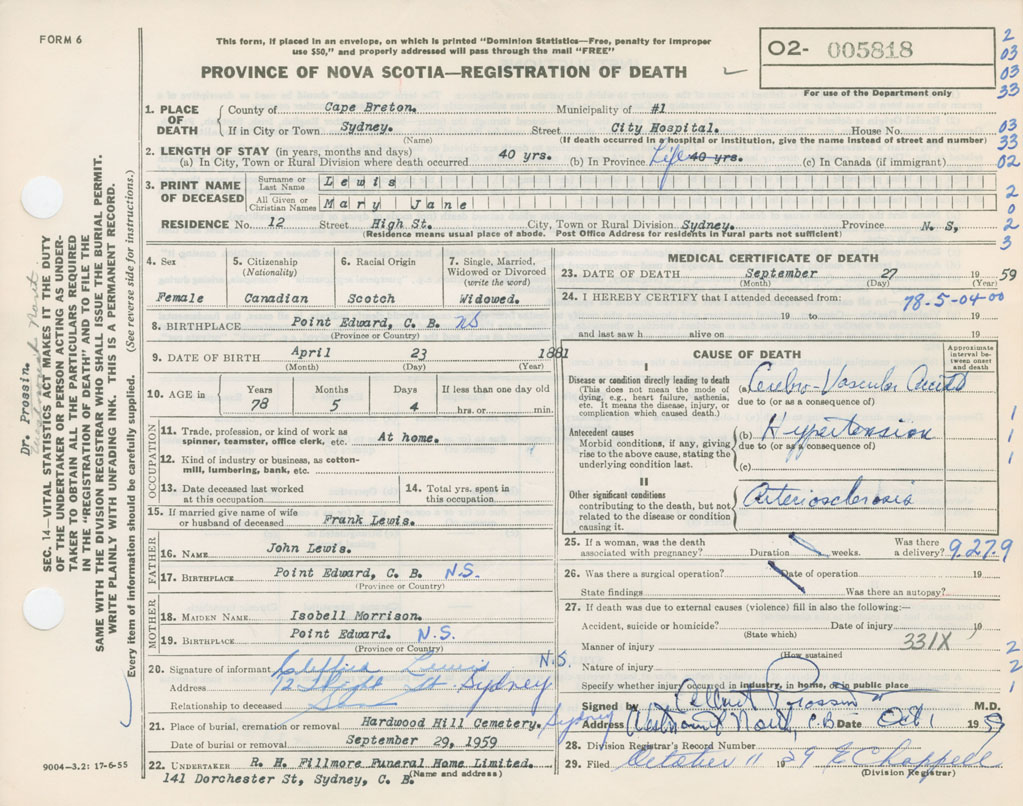 FORM 6
This form, if placed in an envelope, on which is printed "Dominion Statistics—Free, penalty for improper
use $50," and properly addressed will pass through the mail "FREE"
PROVINCE OF NOVA SCOTIA—REGISTRATION OF DEATH
O2- 005818
For use of the Department only
2
03
03
33
03
33
02
2
0
2
3
1. PLACE OF DEATH
County of Cape Breton. Municipality of #1
If in City or Town Sydney. Street City Hospital. House No.
(Name) (If death occurred in a hospital or institution, give the name instead of street and number)
2. LENGTH OF STAY (in years, months and days)
(a) In City, Town or Rural Division where death occurred 40 yrs. (b) In Province Life 40 yrs. (c) In Canada (if immigrant)
3. PRINT NAME OF DECEASED
Surname or Last Name Lewis
All Given or Christian Names Mary Jane
RESIDENCE No. 12 Street High St. City, Town or Rural Division Sydney. Province N. S,
(Residence means usual place of abode. Post Office Address for residents in rural parts not sufficient)
4. Sex
Female
5. Citizenship
(Nationality)
Canadian
6. Racial Origin
Scotch
7. Single, Married, Widowed or Divorced
(write the word)
Widowed.
8. BIRTHPLACE Point Edward, C. B. NS
(Province or Country)
9. DATE OF BIRTH April 23 1881
(Month) (Day) (Year)
10. AGE in
Years 78
Months 5
Days 4
If less than one day old
hrs. or min.
OCCUPATION
11. Trade, profession, or kind of work as spinner, teamster, office clerk, etc. At home.
12. Kind of industry or business, as cotton-mill, lumbering, bank, etc.
13. Date deceased last worked at this occupation
14. Total yrs. spent in this occupation
15. If married give name of wife or husband of deceased Frank Lewis.
FATHER
16. NAME John Lewis.
17. BIRTHPLACE Point Edward, C. B. N.S.
(Province or Country)
MOTHER
18. MAIDEN NAME Isobell Morrison.
19. BIRTHPLACE Point Edward. N.S.
(Province or Country)
20. Signature of informant Lewis N.S.
Address 12 High St Sydney
Relationship to deceased
21. Place of burial, cremation or removal Hardwood Hill Cemetery. Sydney
Date of burial or removal September 29, 1959
22. UNDERTAKER R. H. Fillmore Funeral Home Limited.
141 Dorchester St, Sydney, C. B.
(Name and address)
9004—3.2: 17-6-55
MEDICAL CERTIFICATE OF DEATH
23. DATE OF DEATH September 27 1959
(Month) (Day) (Year)
24. I HEREBY CERTIFY that I attended deceased from: 78-5-04-00
19 to 19
and last saw h alive on 19
CAUSE OF DEATH
Approximate interval between onset and death
I
Disease or condition directly leading to death
(This does not mean the mode of dying, e.g., heart failure, asthenia, etc. It means the disease, injury, or complication which caused death.)
(a) Cerebro-Vascular
due to (or as a consequence of)
Antecedent causes
Morbid conditions, if any, giving rise to the above cause, stating the underlying condition last.
(b) Hypertension
due to (or as a consequence of)
(c)
1
1
1
II
Other significant conditions
contributing to the death, but not related to the disease or condition causing it.
Arteriosclerosis
25. If a woman, was the death associated with pregnancy? Duration weeks. Was there a delivery? 9.27.9
26. Was there a surgical operation? Date of operation 19
State findings Was there an autopsy?
27. If death was due to external causes (violence) fill in also the following:—
Accident, suicide or homicide? Date of injury 19
(State which)
Manner of injury 331X
(How sustained
Nature of injury
Specify whether injury occurred in industry, in home, or in public place
2
2
1
Signed by Prossin M.D.
Address Westmount North, C.B Date Oct 1 1959
28. Division Registrar's Record Number
29. Filed October 11 1959 E Chappell
(Division Registrar)
Dr. Prossin.
Westmount North.
SEC. 14—VITAL STATISTICS ACT MAKES IT THE DUTY
OF THE UNDERTAKER OR PERSON ACTING AS UNDER-
TAKER TO OBTAIN ALL THE PARTICULARS REQUIRED
IN THE "REGISTRATION OF DEATH" AND TO FILE THE
SAME WITH THE DIVISION REGISTRAR WHO SHALL ISSUE THE BURIAL PERMIT.
WRITE PLAINLY WITH UNFADING INK. THIS IS A PERMANENT RECORD.
Every item of information should be carefully supplied. (See reverse side for instructions.)